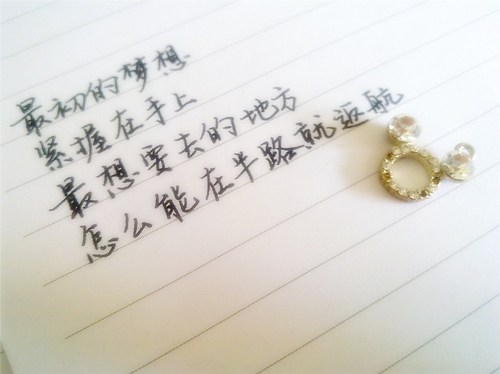 最初的梦想
紧握在手上
最想要去的地方
怎么能在半路就返航